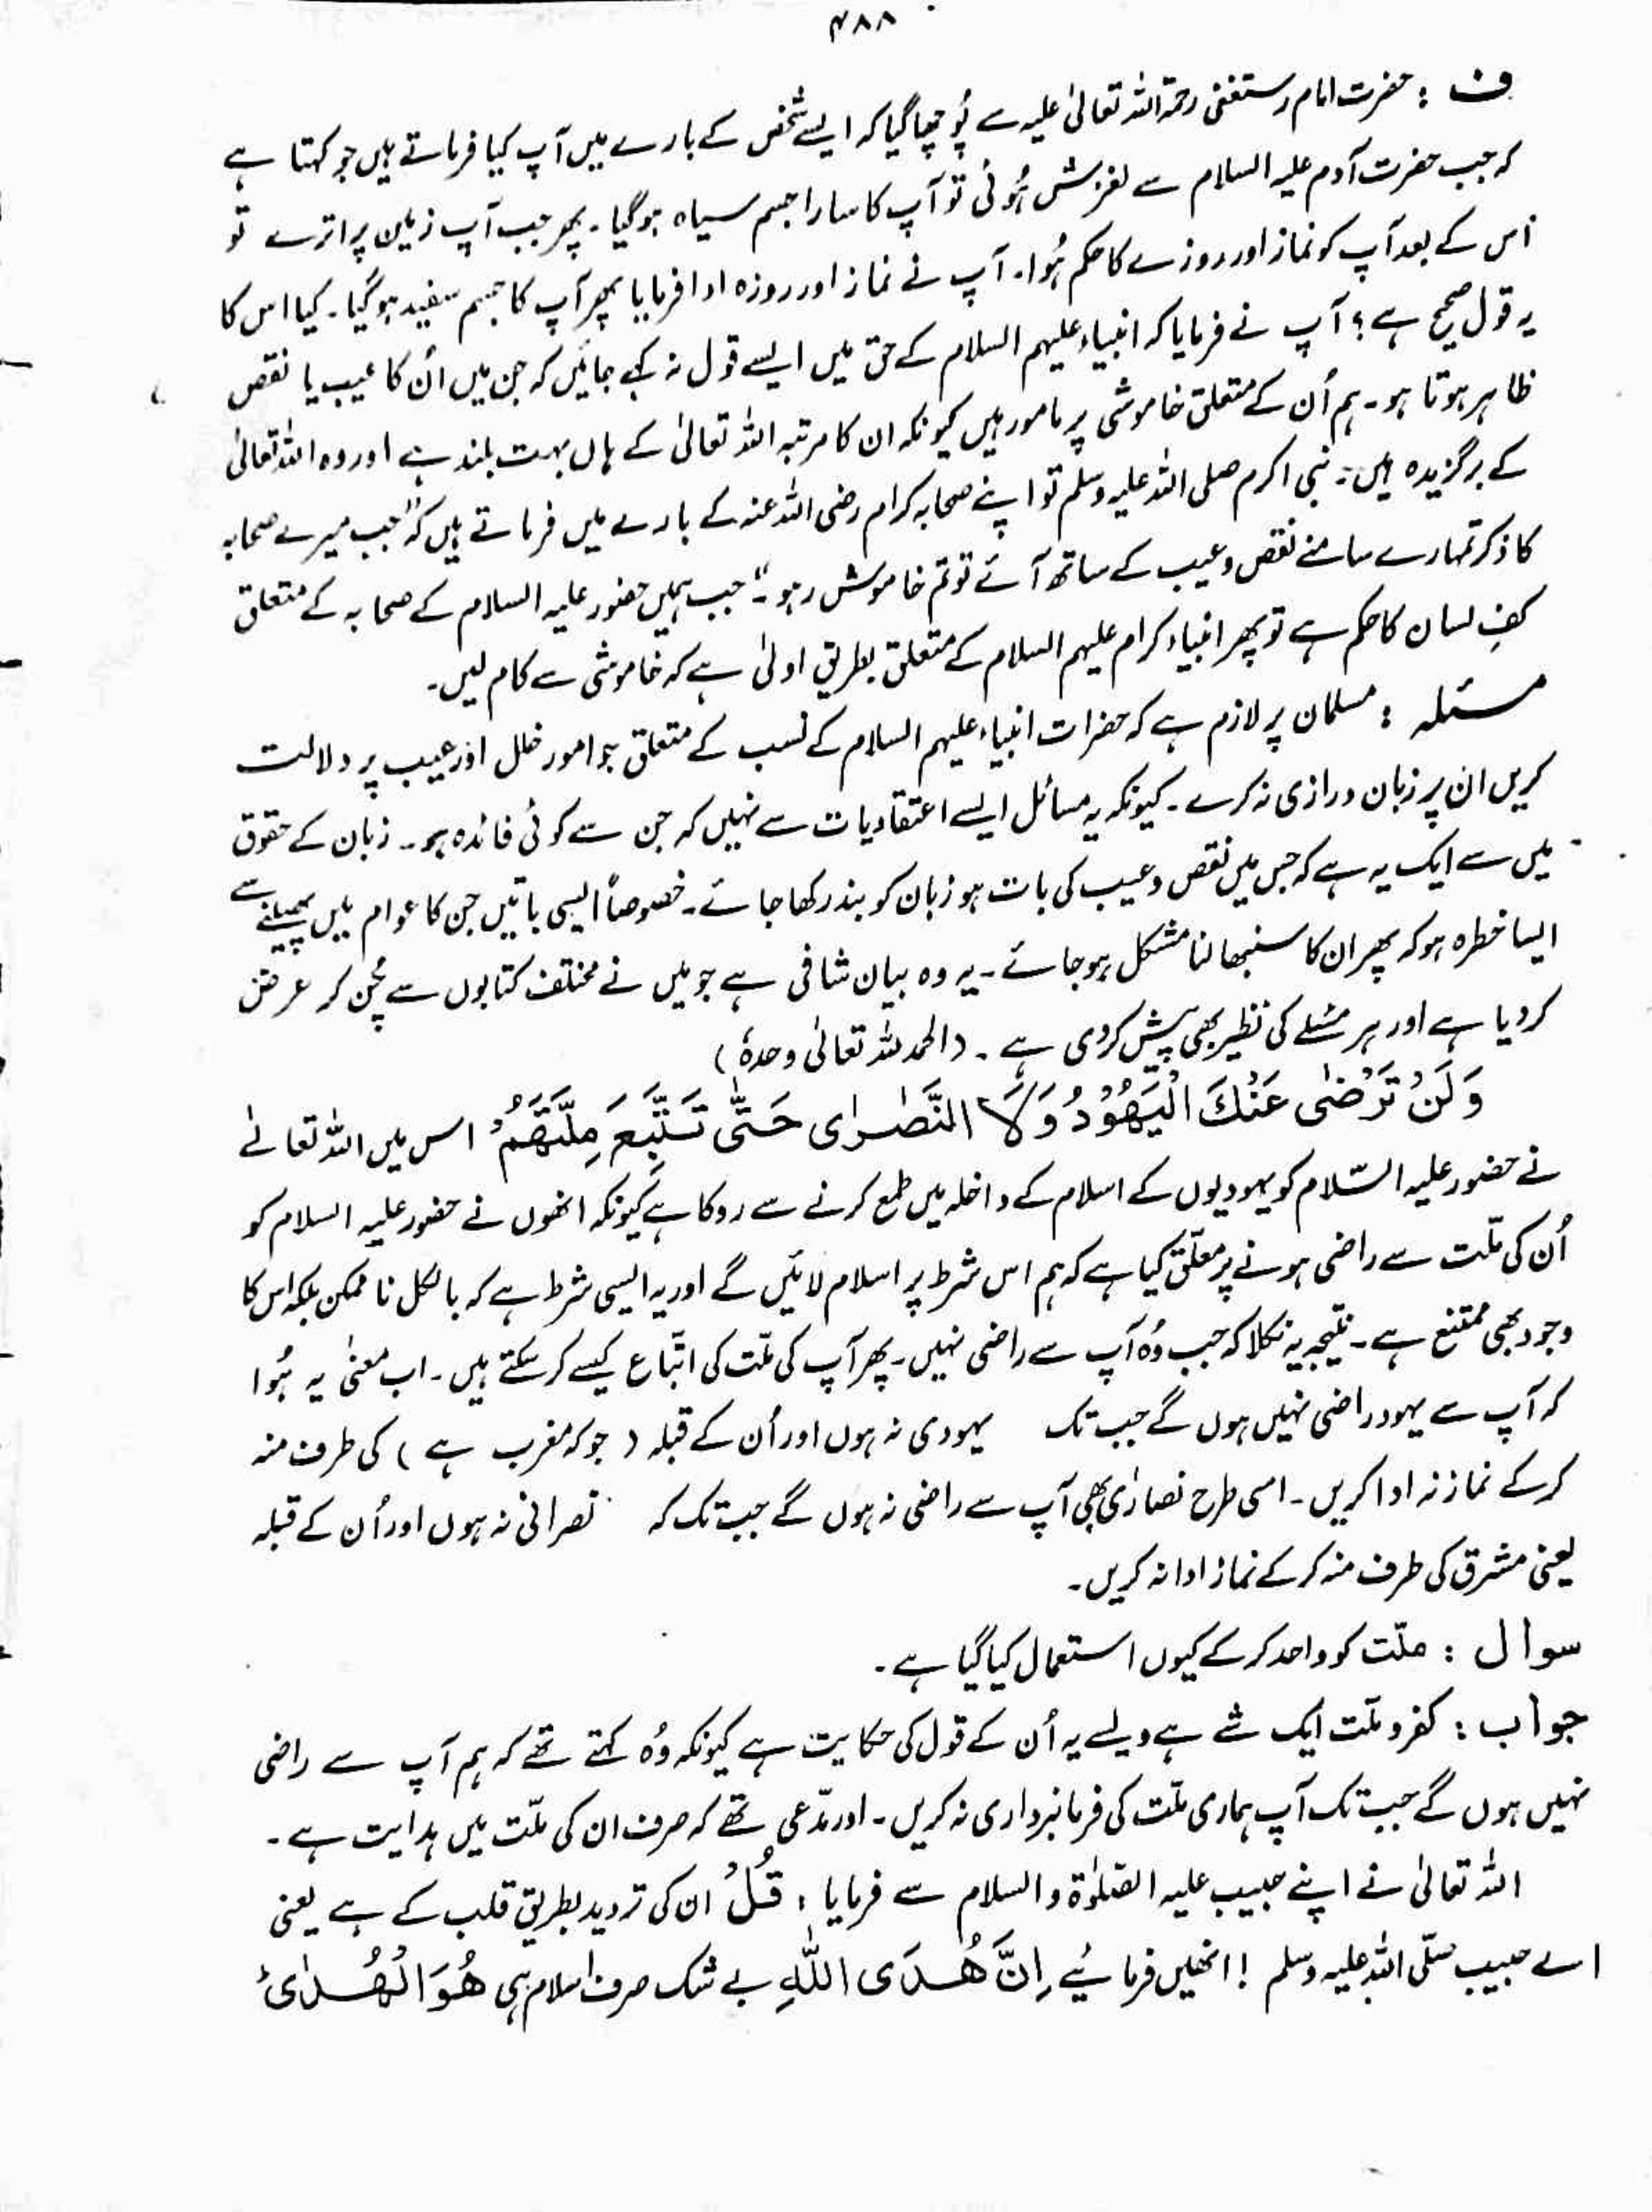 ۴۸۸
ف : حضرت امام رستغفنی رحمۃ اللہ تعالیٰ علیہ سے پُوچھا گیا کہ ایسے شخص کے بارے میں آپ کیا فرماتے ہیں جو کہتا ہے
کہ جب حضرت آدم علیہ السلام سے لغزش ہُوئی تو آپ کا سارا جسم سیاہ ہوگیا۔ پھر جب آپ زمین پر اترے تو
اُس کے بعد آپ کو نماز اور روزے کا حکم ہُوا۔ آپ نے نماز اور روزہ ادا فرمایا پھر آپ کا جسم سفید ہوگیا۔ کیا اس کا
یہ قول صحیح ہے؟ آپ نے فرمایا کہ انبیاء علیہم السلام کے حق میں ایسے قول نہ کہے جائیں کہ جن میں اُن کا عیب یا نقص
ظاہر ہوتا ہو۔ ہم اُن کے متعلق خاموشی پر مامور ہیں کیونکہ ان کا مرتبہ اللہ تعالیٰ کے ہاں بہت بلند ہے اور وہ اللہ تعالیٰ
کے برگزیدہ ہیں۔ نبی اکرم صلی اللہ علیہ وسلم تو اپنے صحابہ کرام رضی اللہ عنہ کے بارے میں فرماتے ہیں کہ "جب میرے صحابہ
کا ذکر تمہارے سامنے نقص و عیب کے ساتھ آئے تو تم خاموش رہو۔" جب ہمیں حضور علیہ السلام کے صحابہ کے متعلق
کفِ لسان کا حکم ہے تو پھر انبیاء کرام علیہم السلام کے متعلق بطریق اولیٰ ہے کہ خاموشی سے کام لیں۔
مسئلہ : مسلمان پر لازم ہے کہ حضرات انبیاء علیہم السلام کے نسب کے متعلق جو امور خلل اور عیب پر دلالت
کریں ان پر زبان درازی نہ کرے۔ کیونکہ یہ مسائل ایسے اعتقادیات سے نہیں کہ جن سے کوئی فائدہ ہو۔ زبان کے حقوق
میں سے ایک یہ ہے کہ جس میں نقص و عیب کی بات ہو زبان کو بند رکھا جائے۔ خصوصاً ایسی باتیں جن کا عوام میں پھیلنے سے
ایسا خطرہ ہو کہ پھر ان کا سنبھالنا مشکل ہوجائے۔ یہ وہ بیان شافی ہے جو میں نے مختلف کتابوں سے چُن کر عرض
کردیا ہے اور ہر مسئلے کی نظیر بھی پیش کردی ہے۔ (الحمد للہ تعالیٰ وحدہٗ)
وَلَنْ تَرْضٰى عَنْكَ الْيَهُوْدُ وَلَا النَّصٰرٰى حَتّٰى تَتَّبِعَ مِلَّتَهُمْ اس میں اللہ تعالےٰ
نے حضور علیہ السّلام کو یہودیوں کے اسلام کے داخلہ میں طمع کرنے سے روکا ہے کیونکہ انھوں نے حضور علیہ السلام کو
اُن کی ملّت سے راضی ہونے پر معلّق کیا ہے کہ ہم اس شرط پر اسلام لائیں گے اور یہ ایسی شرط ہے کہ بالکل ناممکن بلکہ اس کا
وجود بھی ممتنع ہے۔ نتیجہ یہ نکلا کہ جب وُہ آپ سے راضی نہیں۔ پھر آپ کی ملّت کی اتّباع کیسے کرسکتے ہیں۔ اب معنیٰ یہ ہُوا
کہ آپ سے یہود راضی نہیں ہوں گے جب تک یہودی نہ ہوں اور اُن کے قبلہ (جو کہ مغرب ہے) کی طرف منہ
کرکے نماز نہ ادا کریں۔ اسی طرح نصارٰی بھی آپ سے راضی نہ ہوں گے جب تک کہ نصرانی نہ ہوں اور اُن کے قبلہ
یعنی مشرق کی طرف منہ کرکے نماز ادا نہ کریں۔
سوال : ملّت کو واحد کرکے کیوں استعمال کیا گیا ہے۔
جواب : کفر و ملّت ایک شے ہے ویسے یہ اُن کے قول کی حکایت ہے کیونکہ وُہ کہتے تھے کہ ہم آپ سے راضی
نہیں ہوں گے جب تک آپ ہماری ملّت کی فرمانبرداری نہ کریں۔ اور مدّعی تھے کہ صرف ان کی ملّت میں ہدایت ہے۔
اللہ تعالیٰ نے اپنے حبیب علیہ الصّلوٰۃ والسلام سے فرمایا : قُلْ ان کی تردید بطریق قلب کے ہے یعنی
اے حبیب صلّی اللہ علیہ وسلم ! انھیں فرمائیے اِنَّ هُدَى اللّٰهِ بے شک صرف اسلام ہی هُوَ الْهُدٰى